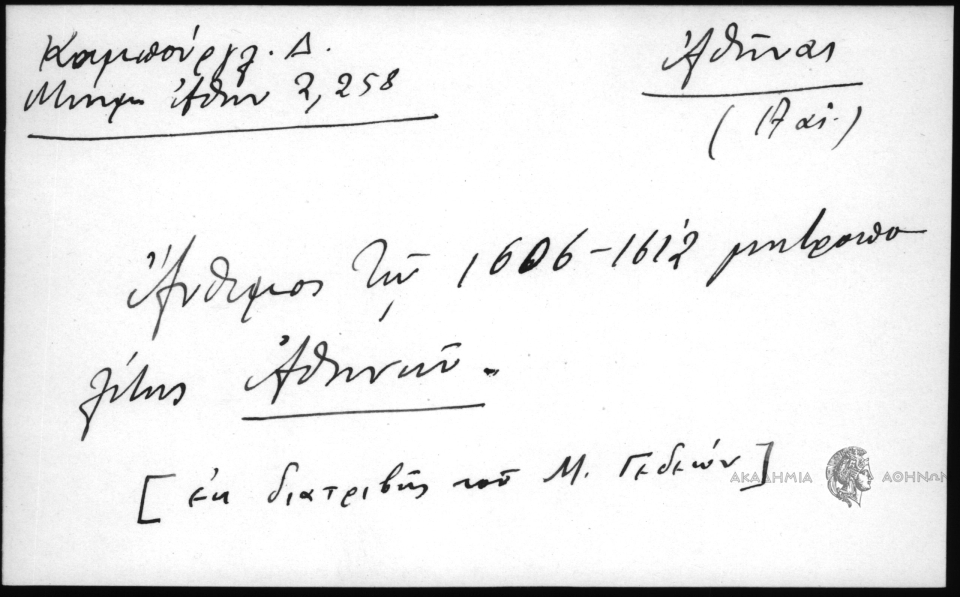 Καμπούρογλ. Δ.
Μνημ Ἀθην 2, 258
Ἀθῆναι
(17 αἰ.)
Ἄνθιμος τῷ 1606-1612 μητροπο
λίτης Ἀθηνῶν.
[ἐκ διατριβῆς τοῦ Μ. Γεδεών]
ΑΚΑΔΗΜΙΑ ΑΘΗΝΩΝ